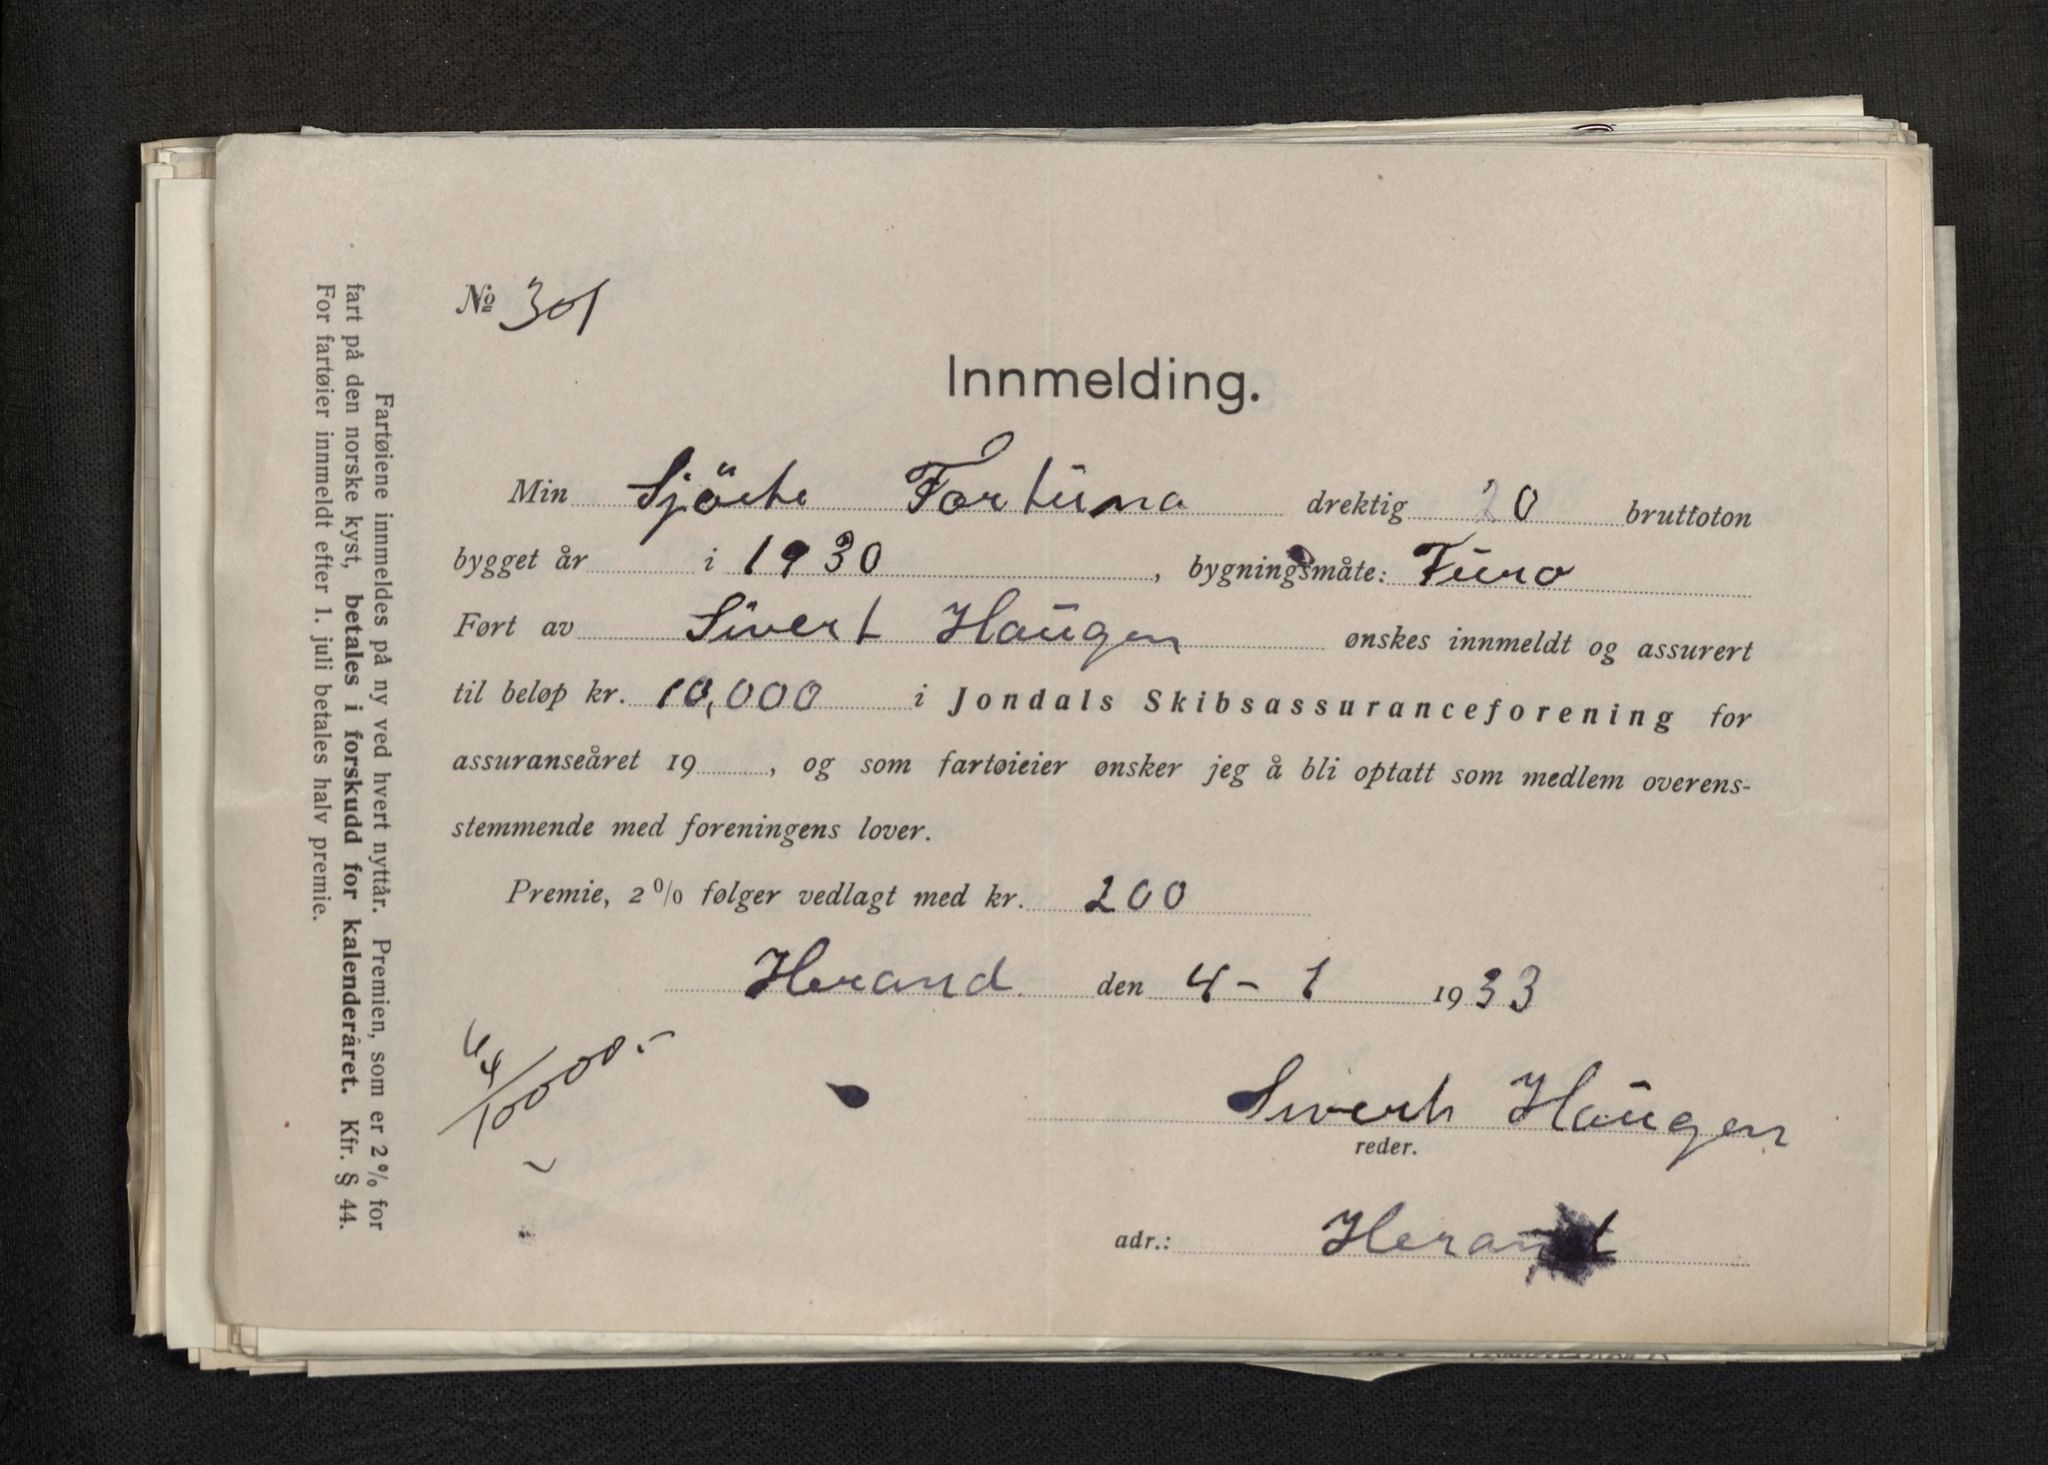 No 301
Innmelding.
Min Sjöite Fortuna drektig 20 bruttoton
bygget år i 1930, bygningsmåte: Furo
Ført av Sivert Haugen ønskes innmeldt og assurert
til beløp kr. 10,000 i Jondals Skibsassuranceforening for
assuranseåret 19 , og som fartøieier ønsker jeg å bli optatt som medlem overens-
stemmende med foreningens lover.
Premie, 2 % følger vedlagt med kr. 200
Herand den 4 - 1 1933
Sivert Haugen
reder.
adr.: Herand
4/4 10000.-
Fartøiene innmeldes på ny ved hvert nyttår. Premien, som er 2 % for
fart på den norske kyst, betales i forskudd for kalenderåret. Kfr. § 44.
For fartøier innmeldt efter 1. juli betales halv premie.